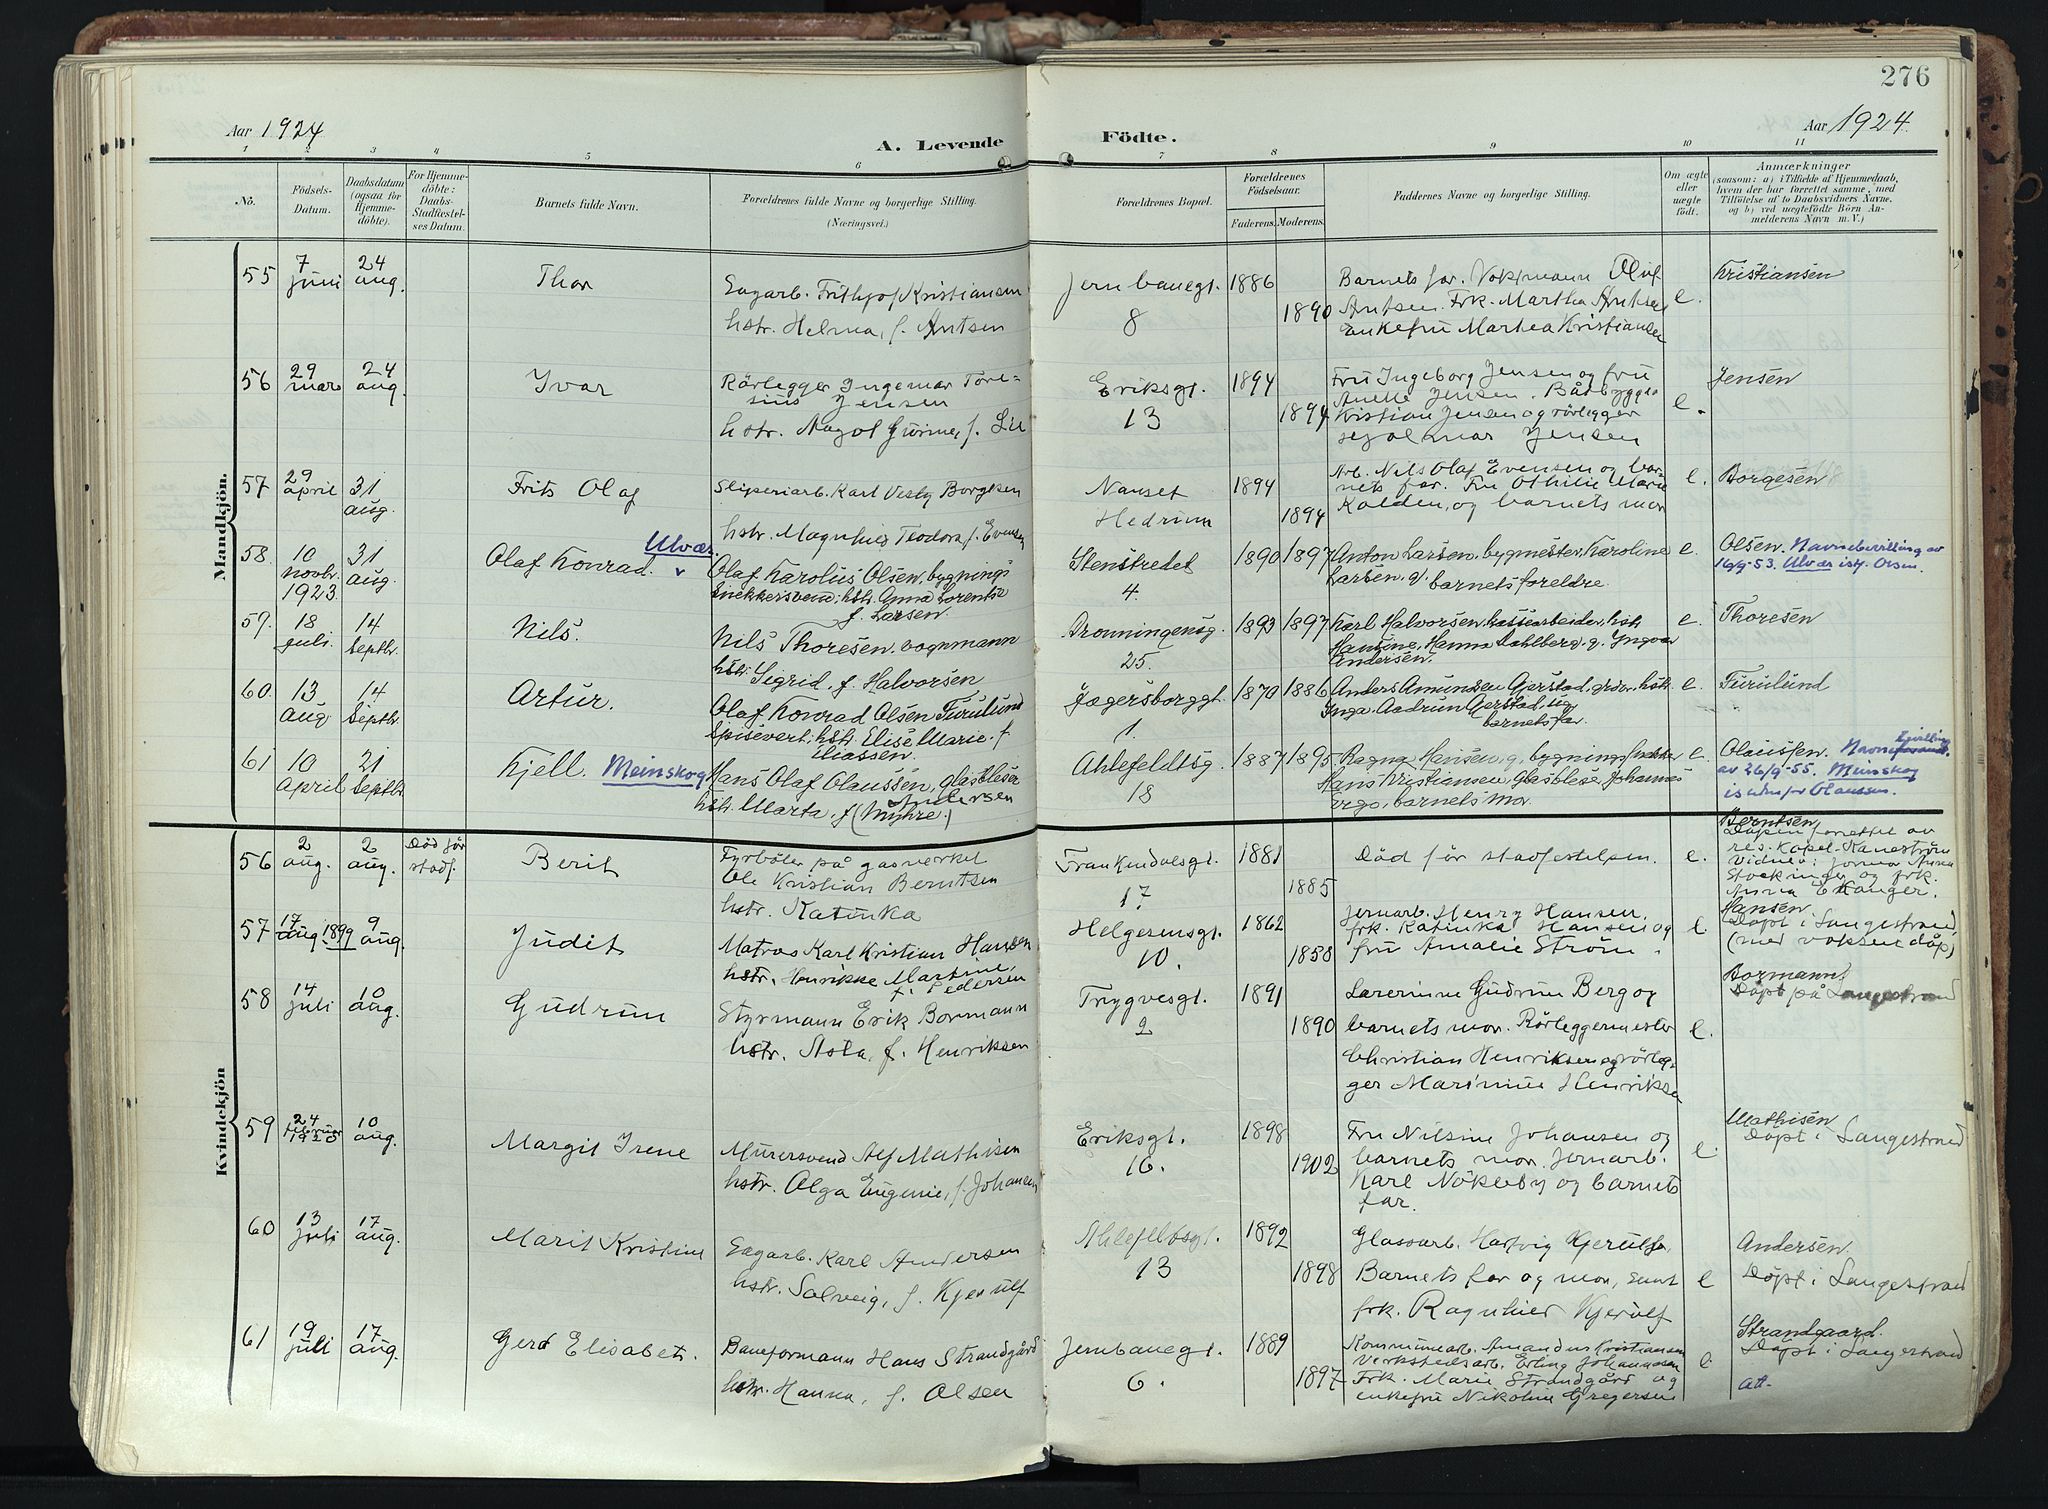 276
Aar 1924
A. Levende Födte.
Aar 1924.
1 2 3 4 5 6 7 8 9 10 11
No.
Födsels-
Datum.
Daabsdatum
(ogsaa for
Hjemme-
döbte).
For Hjemme-
döbte:
Daabs-
Stadfæstel-
ses Datum.
Barnets fulde Navn.
Forældrenes fulde Navne og borgerlige Stilling.
(Næringsvei.)
Forældrenes Bopæl.
Forældrenes
Födselsaar.
Faderens. Moderens.
Faddernes Navne og borgerlige Stilling.
Om ægte
eller
uægte
födt.
Anmærkninger
(saasom: a) i Tilfælde af Hjemmedaab,
hvem der har forrettet samme, med
Tilföielse af to Daabsvidners Navne,
og b) ved uægtefödte Börn An-
melderens Navn m. V.)
Mandkjön.
55 7 juni 24 aug. Thor
Frithjof Kristiansen
hstr. Helma, f. Antsen
Jernbanegt. 8
1886 1890
Barnets far.
Frk. Martha
enkefru Marthea Kristiansen
e.
Kristiansen
56 29 mars 24 aug. Ivar
Rörlegger Ingemar
Jensen
hstr. f. Lie
Eriksgt. 13
1894 1894
Fru Ingeborg Jensen og fru
Jensen. Båtbygger
Kristian Jensen og rörlegger
Hjalmar Jensen
e.
Jensen
57 29 april 31 aug. Frits Olaf
Sliperiarb. Karl
hstr. Magnhild Teodora f. Evensen
Nanset
Hedrum
1894 1894
Arb. Nils Olaf Evensen og bar-
nets far. Fru Othilie Marie
Kolden, og barnets mor
e.
Borgesen
58. 10 novbr. 1923. 31 aug. Olaf Konrad. Ulvær
Olaf Karolius Olsen, bygnings
snekkersvend; hstr. Anna Lorentse
f. Larsen.
Stenstredet 4.
1890 1897
Anton Larsen, bygmester, Karoline
Larsen, og barnets foreldre.
e.
Olsen. Navnebevilling av
16/9-53. Ulvær istf. Olsen.
59. 18 juli. 14 Septbr. Nils.
Nils Thoresen, vognmann
hstr. Sigrid, f. Halvorsen
Dronningensg. 25.
1893 1897
Karl Halvorsen, kassearbeider, hstr.
Hanna Dahlberg, og Ingvar
Andersen.
e.
Thoresen
60. 13 Aug 14 Septbr Artur.
Olaf Konrad Olsen Furulund
spisevert; hstr. Elise Marie, f.
Eliassen.
Jægersborggt. 1.
1870 1886
Anders Amundsen Gjerstad, hstr.
Inga, Aadrun Gjerstad, og
barnets far.
e.
Furulund
61 10 April 21 Septbr Kjell. Meinskog
Hans Olaf Olaussen, glasblæser
hstr. Marta, f. (Myhre.) Andersen
Ahlefeldtsg. 18
1887 1895
Ragna Hansen, og bygningssnekker
Hans Kristiansen, glasblæser Johannes
barnets mor.
e.
Olaussen. Navnebevilling
av 26/9-55. Meinskog
istedenfor Olaussen.
Kvindekjön
56 2 aug. 2 aug. Död för stadf. Berit
Fyrböter på gasverket
Ole Kristian Berntsen
hstr. Katinka
Frankendalsgt. 17.
1881 1885
Död för stadfestelsen.
e.
Berntsen
Dåpen forrettet av
res. kapel.
Vidner: jormor Anna
Stockinger og frk.
Anna Ekanger.
57 17 aug 1899 9 aug. Judit
Matros Karl Kristian Hansen
hstr. Henrikke Martine,
f. Pedersen
Helgeroensgt. 10.
1862 1858
Jernarb. Henry Hansen,
frk. Katinka Hansen og
fru Amalie Ström.
e.
Hansen
Döpt i Langestrand,
(med voksendåp)
58 14 juli 10 aug. Gudrun
Styrmann Erik Bormann
hstr. Asta, f. Henriksen
Trygvesgt. 2
1891 1890
Lærerinne Gudrun Berg og
barnets mor. Rörleggermester
Christian Henriksen og rörleg-
ger Marinius Henriksen
e.
Bormann.
Döpt på Langestrand
59 24 februar 1920 10 aug. Margit Irene
Murersvend Alf Mathisen
hstr. Olga Eugenie, f. Johansen
Eriksgt. 16.
1898 1902
Fru Nilsine Johansen og
barnets mor. Jernarb.
Karl Nökleby og barnets
far.
e.
Mathisen
Döpt i Langestrand
60 13 juli 17 aug. Marit Kristine
Karl Andersen
hstr. Solveig, f. Kjerulf
Ahlefeldsgt. 13
1892 1898
Glassarb. Hartvig Kjerulf,
Barnets far og mor, samt
frk. Ragnhild Kjerulf
e
Andersen.
Döpt i Langestrand
61 19 juli 17 aug. Gerd Elisabet.
Baneformann Hans Strandgård
hstr. Hanna, f. Olsen
Jernbanegt. 6.
1889 1897
Kommunearb. Amandus Kristiansen
Verkstedsarb. Erling Johannesen
Frk. Marie Strandgård og
enkefru Nikoline Gregersen
e.
Strandgaard.
Döpt i Langestrand